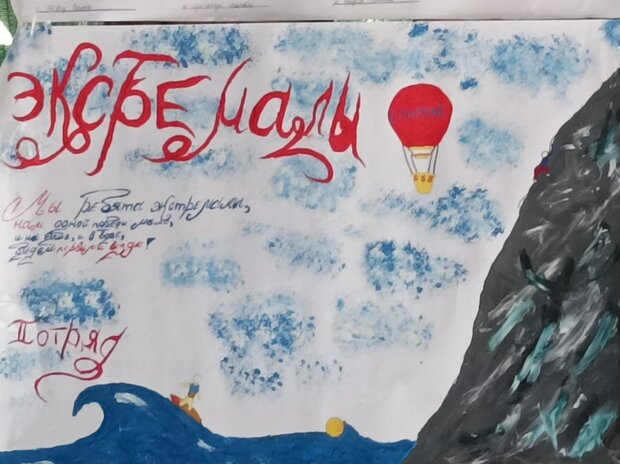 ЭКСТРЕМАЛЫ
Мы Ребята экстремалы,
нам одной победы мало,
и на и в
будем первыми везде!
II отряд